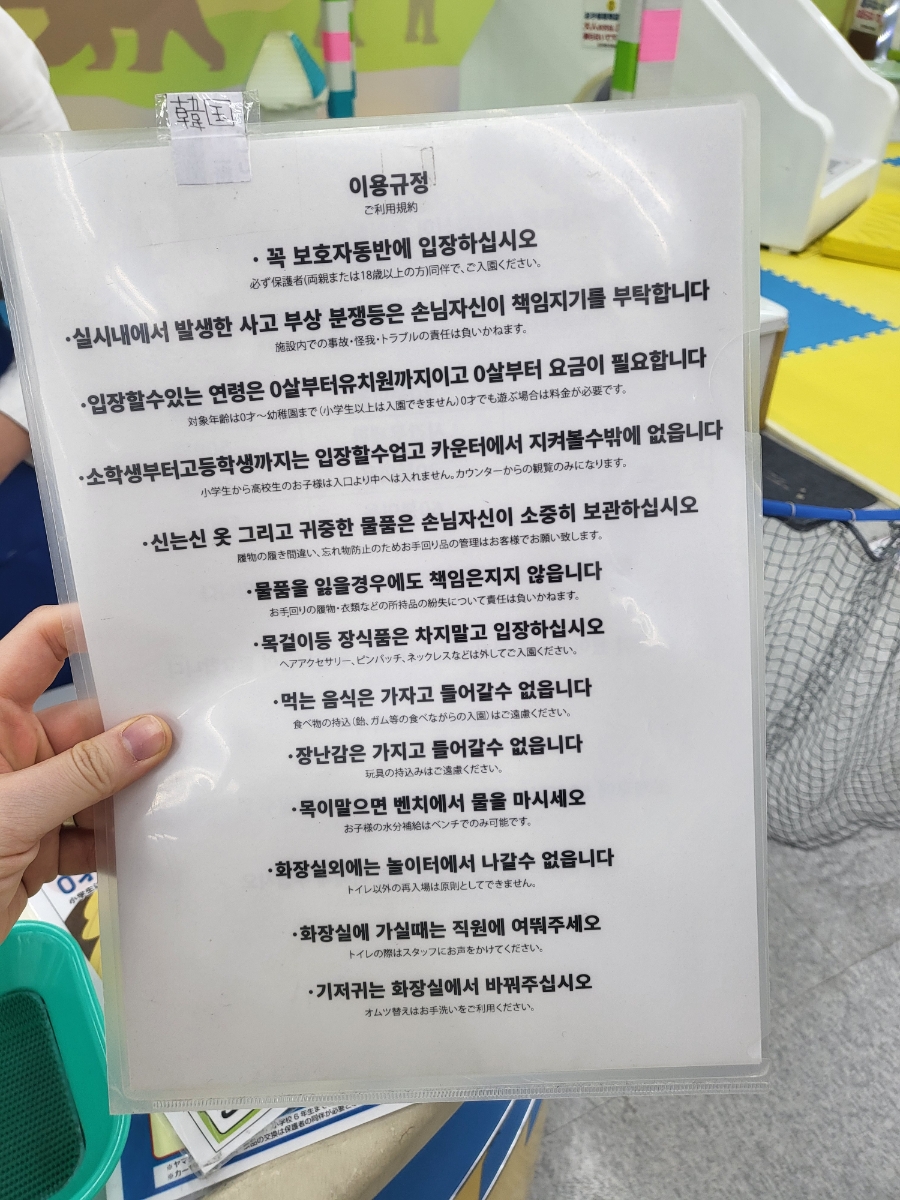 韓国
이용규정
ご利用規約
· 꼭 보호자동반에 입장하십시오
必ず保護者(両親または18歳以上の方)同伴で、ご入園ください。
·실시내에서 발생한 사고 부상 분쟁등은 손님자신이 책임지기를 부탁합니다
施設内での事故・怪我・トラブルの責任は負いかねます。
·입장할수있는 연령은 0살부터유치원까지이고 0살부터 요금이 필요합니다
対象年齢は0才～幼稚園まで（小学生以上は入園できません）0才でも遊ぶ場合は料金が必要です。
·소학생부터고등학생까지는 입장할수업고 카운터에서 지켜볼수밖에 없읍니다
小学生から高校生のお子様は入口より中へは入れません。カウンターからの観覧のみになります。
·신는신 옷 그리고 귀중한 물품은 손님자신이 소중히 보관하십시오
履物の履き間違い、忘れ物防止のためお手回り品の管理はお客様でお願い致します。
·물품을 잃을경우에도 책임은지지 않읍니다
お手回りの履物・衣類などの所持品の紛失について責任は負いかねます。
·목걸이등 장식품은 차지말고 입장하십시오
ヘアアクセサリー、ピンバッチ、ネックレスなどは外してご入園ください。
·먹는 음식은 가자고 들어갈수 없읍니다
食べ物の持込（飴、ガム等の食べながらの入園）はご遠慮ください。
·장난감은 가지고 들어갈수 없읍니다
玩具の持込みはご遠慮ください。
·목이말으면 벤치에서 물을 마시세오
お子様の水分補給はベンチでのみ可能です。
·화장실외에는 놀이터에서 나갈수 없읍니다
トイレ以外の再入場は原則としてできません。
·화장실에 가실때는 직원에 여뚸주세오
トイレの際はスタッフにお声をかけてください。
·기저귀는 화장실에서 바꿔주십시오
オムツ替えはお手洗いをご利用ください。